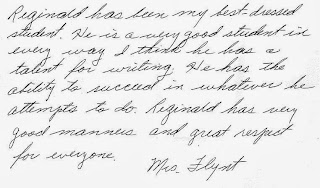 Reginald has been my best-dressed
student. He is a very good student in
every way. I think he has a
talent for writing. He has the
ability to succeed in whatever he
attempts to do. Reginald has very
good manners and great respect
for everyone.
Mrs. Flynt